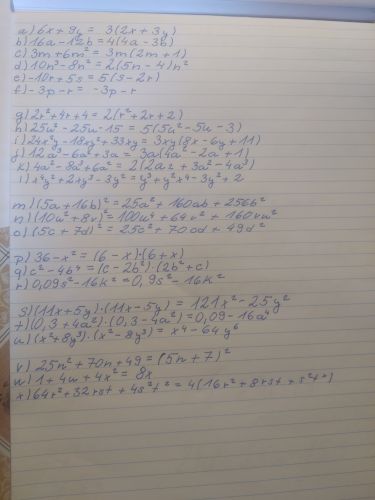 a) 6x + 9y = 3(2x + 3y)
b) 16a - 12b = 4(4a - 3b)
c) 3m + 6m² = 3m(2m + 1)
d) 10n³ - 8n² = 2(5n - 4)n²
e) -10r + 5s = 5(s - 2r)
f) -3p - r = -3p - r
g) 2r² + 4r + 4 = 2(r² + 2r + 2)
h) 25u² - 25u - 15 = 5(5u² - 5u - 3)
i) 24x²y - 18xy² + 33xy = 3xy(8x - 6y + 11)
j) 12a³ - 6a² + 3a = 3a(4a² - 2a + 1)
k) 4a² - 8a³ + 6a⁴ =
l) x⁴y² + 2xy³ - 3y² =
m) (5a + 16b)² = 25a² + 160ab + 256b²
n) (10w² + 8v)² =
o) (5c + 7d)² = 25c² + 70cd + 49d²
p) 36 - x² = (6 - x)·(6 + x)
q) c² - 4b⁴ = (c - 2b²)·(2b² + c)
r) 0,09s² - 16k² = 0,9s² - 16k²
s) (11x + 5y)·(11x - 5y) = 121x² - 25y²
t) (0,3 + 4a²)·(0,3 - 4a²) = 0,09 - 16a⁴
u) (x² + 8y³)·(x² - 8y³) = x⁴ - 64y⁶
v) 25n² + 70n + 49 = (5n + 7)²
w) 1 + 4w + 4x² = 8x
x) 64r² + 32rst + 4s²t² = 4(16r² + 8rst + s²t²)